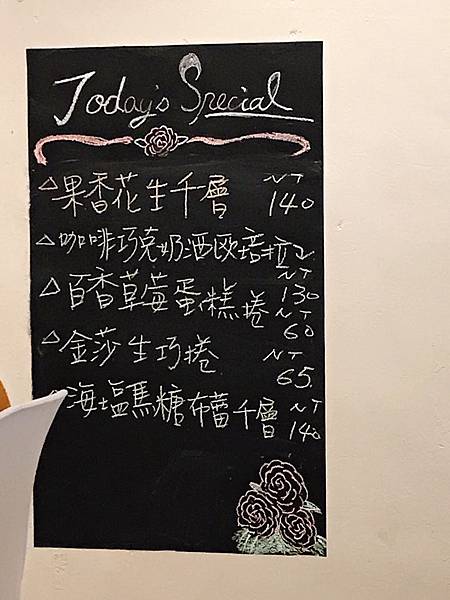 Today's Special
△果香花生千層 NT 140
△咖啡巧克奶酒歐培拉 NT 130
△百香草莓蛋糕捲 NT 60
△金莎生巧捲 NT 65.
海塩焦糖布蕾千層 NT 140